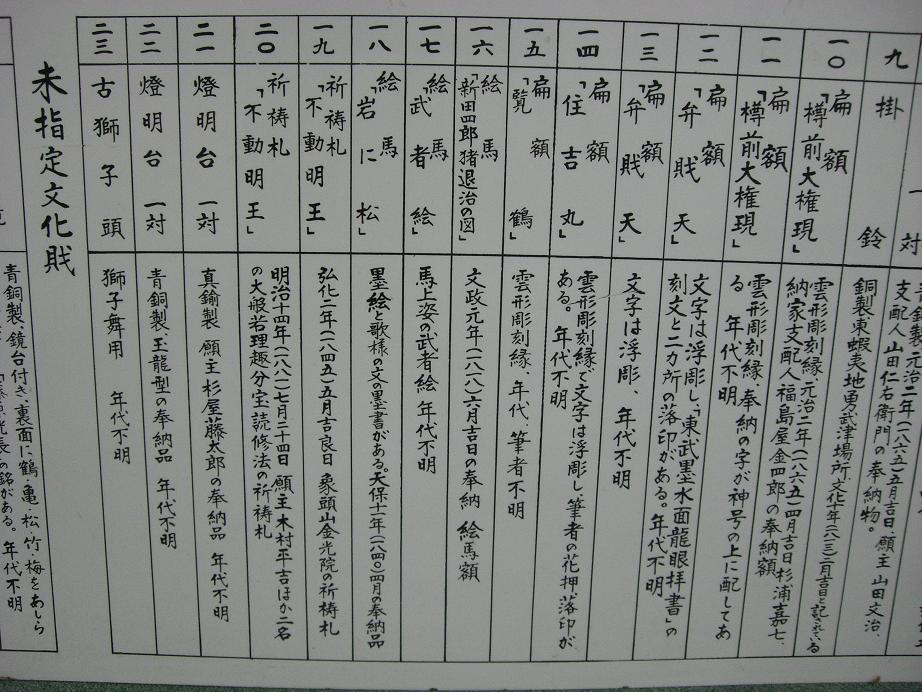 九
掛鈴
一対
支配人山田仁右衛門の奉納物。
元治二年(一八六五)五月吉日、願主 山田文治、
銅製、東蝦夷地勇武津場所、文化十年(一八一三)二月吉日と記されている
一〇
扁額
「樽前大権現」
雲形彫刻縁、元治二年(一八六五)四月吉日杉浦嘉七、
納家支配人福島屋金四郎の奉納額
一一
扁額
「樽前大権現」
雲形彫刻縁、奉納の字が神号の上に配してあ
る 年代不明
一二
扁額
「弁財天」
文字は浮彫し、「東武墨水面龍眼拝書」の
刻文と二カ所の落印がある。年代不明
一三
扁額
「弁財天」
文字は浮彫、年代不明
一四
扁額
「住吉丸」
雲形彫刻縁で文字は浮彫し、筆者の花押、落印が
ある。年代不明
一五
扁額
「覧鶴」
雲形彫刻縁、年代、筆者不明
一六
絵馬
「新田四郎猪退治の図」
文政元年(一八一八)六月吉日の奉納 絵馬額
一七
絵馬
「武者絵」
馬上姿の武者絵 年代不明
一八
絵馬
「岩に松」
墨絵と歌様の文の墨書がある。天保十一年(一八四〇)四月の奉納品
一九
祈祷札
「不動明王」
弘化二年(一八四五)五月吉良日 象頭山金光院の祈祷札
二〇
祈祷札
「不動明王」
明治十四年(一八八一)七月二十四日 願主木村平吉ほか二名
の大般若理趣分宝読修法の祈祷札
二一
燈明台 一対
真鍮製 願主杉屋藤太郎の奉納品 年代不明
二二
燈明台 一対
青銅製、玉龍型の奉納品 年代不明
二三
古獅子頭
獅子舞用 年代不明
未指定文化財
青銅製、鏡台付き、裏面に鶴・亀・松・竹・梅をあしら
の銘がある。年代不明